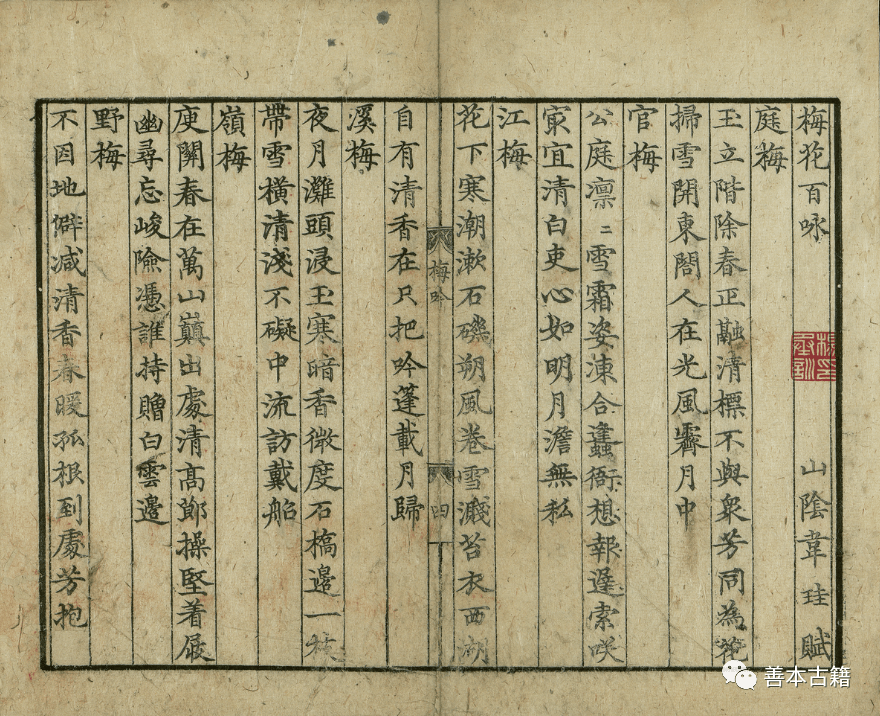 梅花百咏 山陰韋珪賦
庭梅
玉立階除春正融清標不與衆芳同為
掃雪開東閤人在光風霽月中
官梅
公庭凛〻雪霜姿凍合蠭衙想報遲索咲
㝡宜清白吏心如明月澹無私
江梅
花下寒潮漱石磯朔風卷雪濺苔衣西湖
梅吟 四
自有清香在只把吟蓬載月歸
溪梅
夜月灘頭浸玉寒暗香微度石橋邊一枝
帶雪橫清淺不礙中流訪戴船
嶺梅
庾關春在萬山巔出處清高節操堅着屐
幽尋忘峻險憑誰持贈白雲邊
野梅
不因地僻减清香春暖孤根到處芳抱
善本古籍